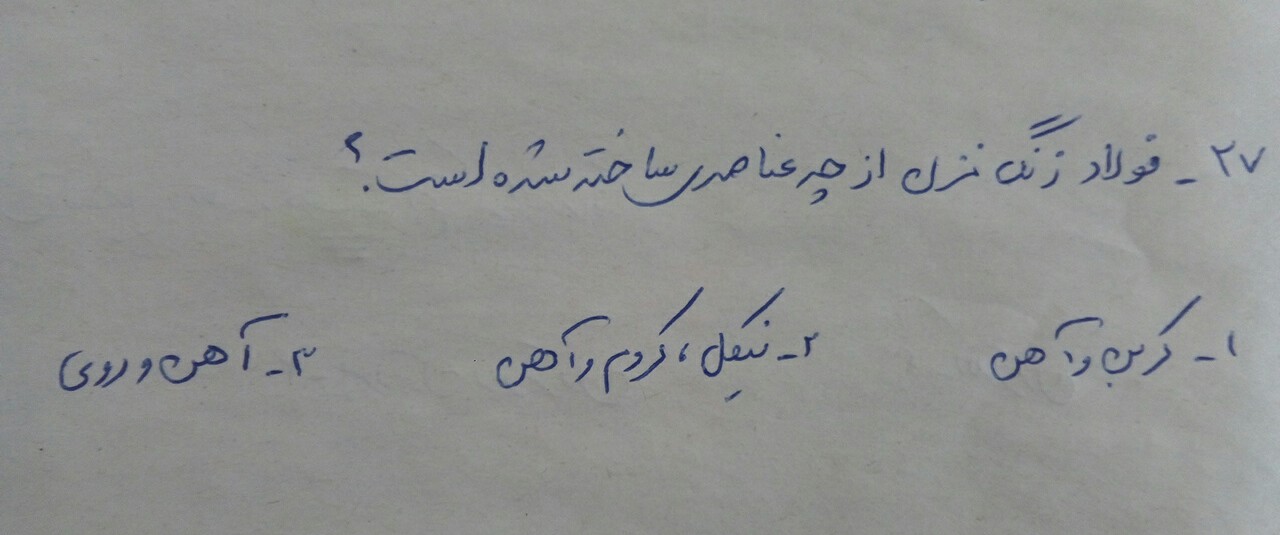 ۲۷ - فولاد زنگ نزن از چه عناصری ساخته شده است؟
۱- کربن و آهن ۲- نیکل، کروم و آهن ۳- آهن و روی